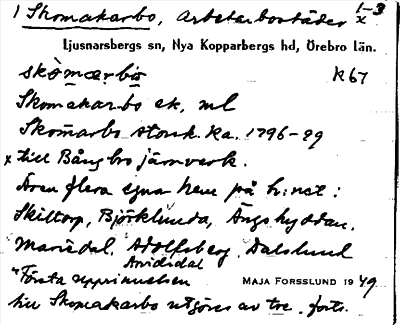 1 Skomakarbo, arbetarbostäder 1-3 x
Ljusnarsbergs sn, Nya Kopparbergs hd, Örebro län.
skòmarbo K67
Skomakarbo ek. ml
Skomarbo storsk. ka. 1796-99
x till Bångbro järnverk.
Även flera egna hem på h:net:
Skiltorp, Björklunda, Ängshyddan,
Mariedal, Adolfsberg, Dalslund
Arvidsdal
"Första upprinnelsen MAJA FORSSLUND 1949
till Skomakarbo utgöres av tre forts.